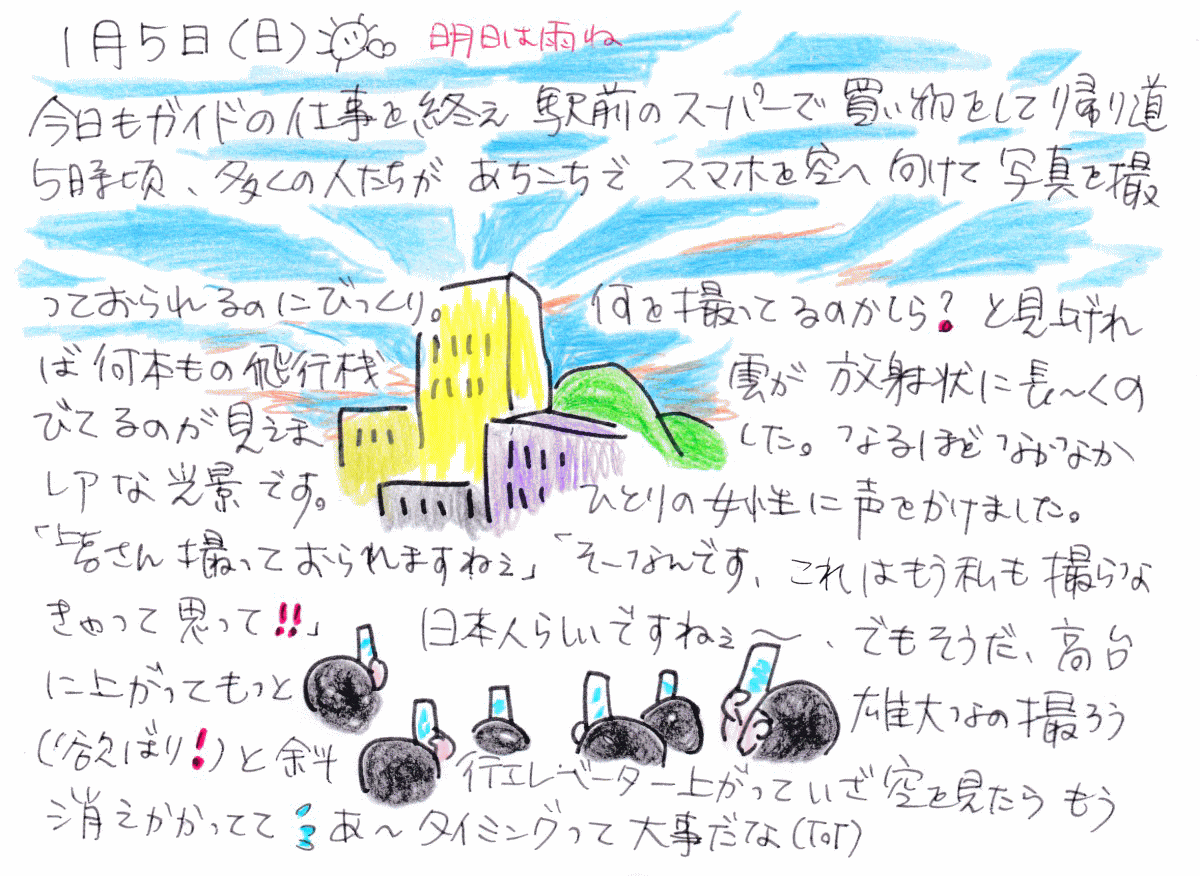 1月5日(日) 明日は雨ね
今日もガイドの仕事を終え 駅前のスーパーで買い物をして帰り道
5時頃、多くの人たちが あちこちで スマホを空へ向けて写真を撮
っておられるのにびっくり。 何を撮ってるのかしら?と見上げれ
ば何本もの飛行桟 雲が 放射状に長〜くの
びてるのが見えま した。なるほど なかなか
レアな光景です。 ひとりの女性に声をかけました。
「皆さん撮っておられますねぇ」「そーなんです、これはもう私も撮らな
きゃって思って!!」 日本人らしいですねぇ〜、でもそうだ、高台
に上がってもっと 雄大なの撮ろう
(欲ばり!)と 行エレベーター上がっていざ空を見たらもう
消えかかってて あ〜タイミングって大事だな(ToT)